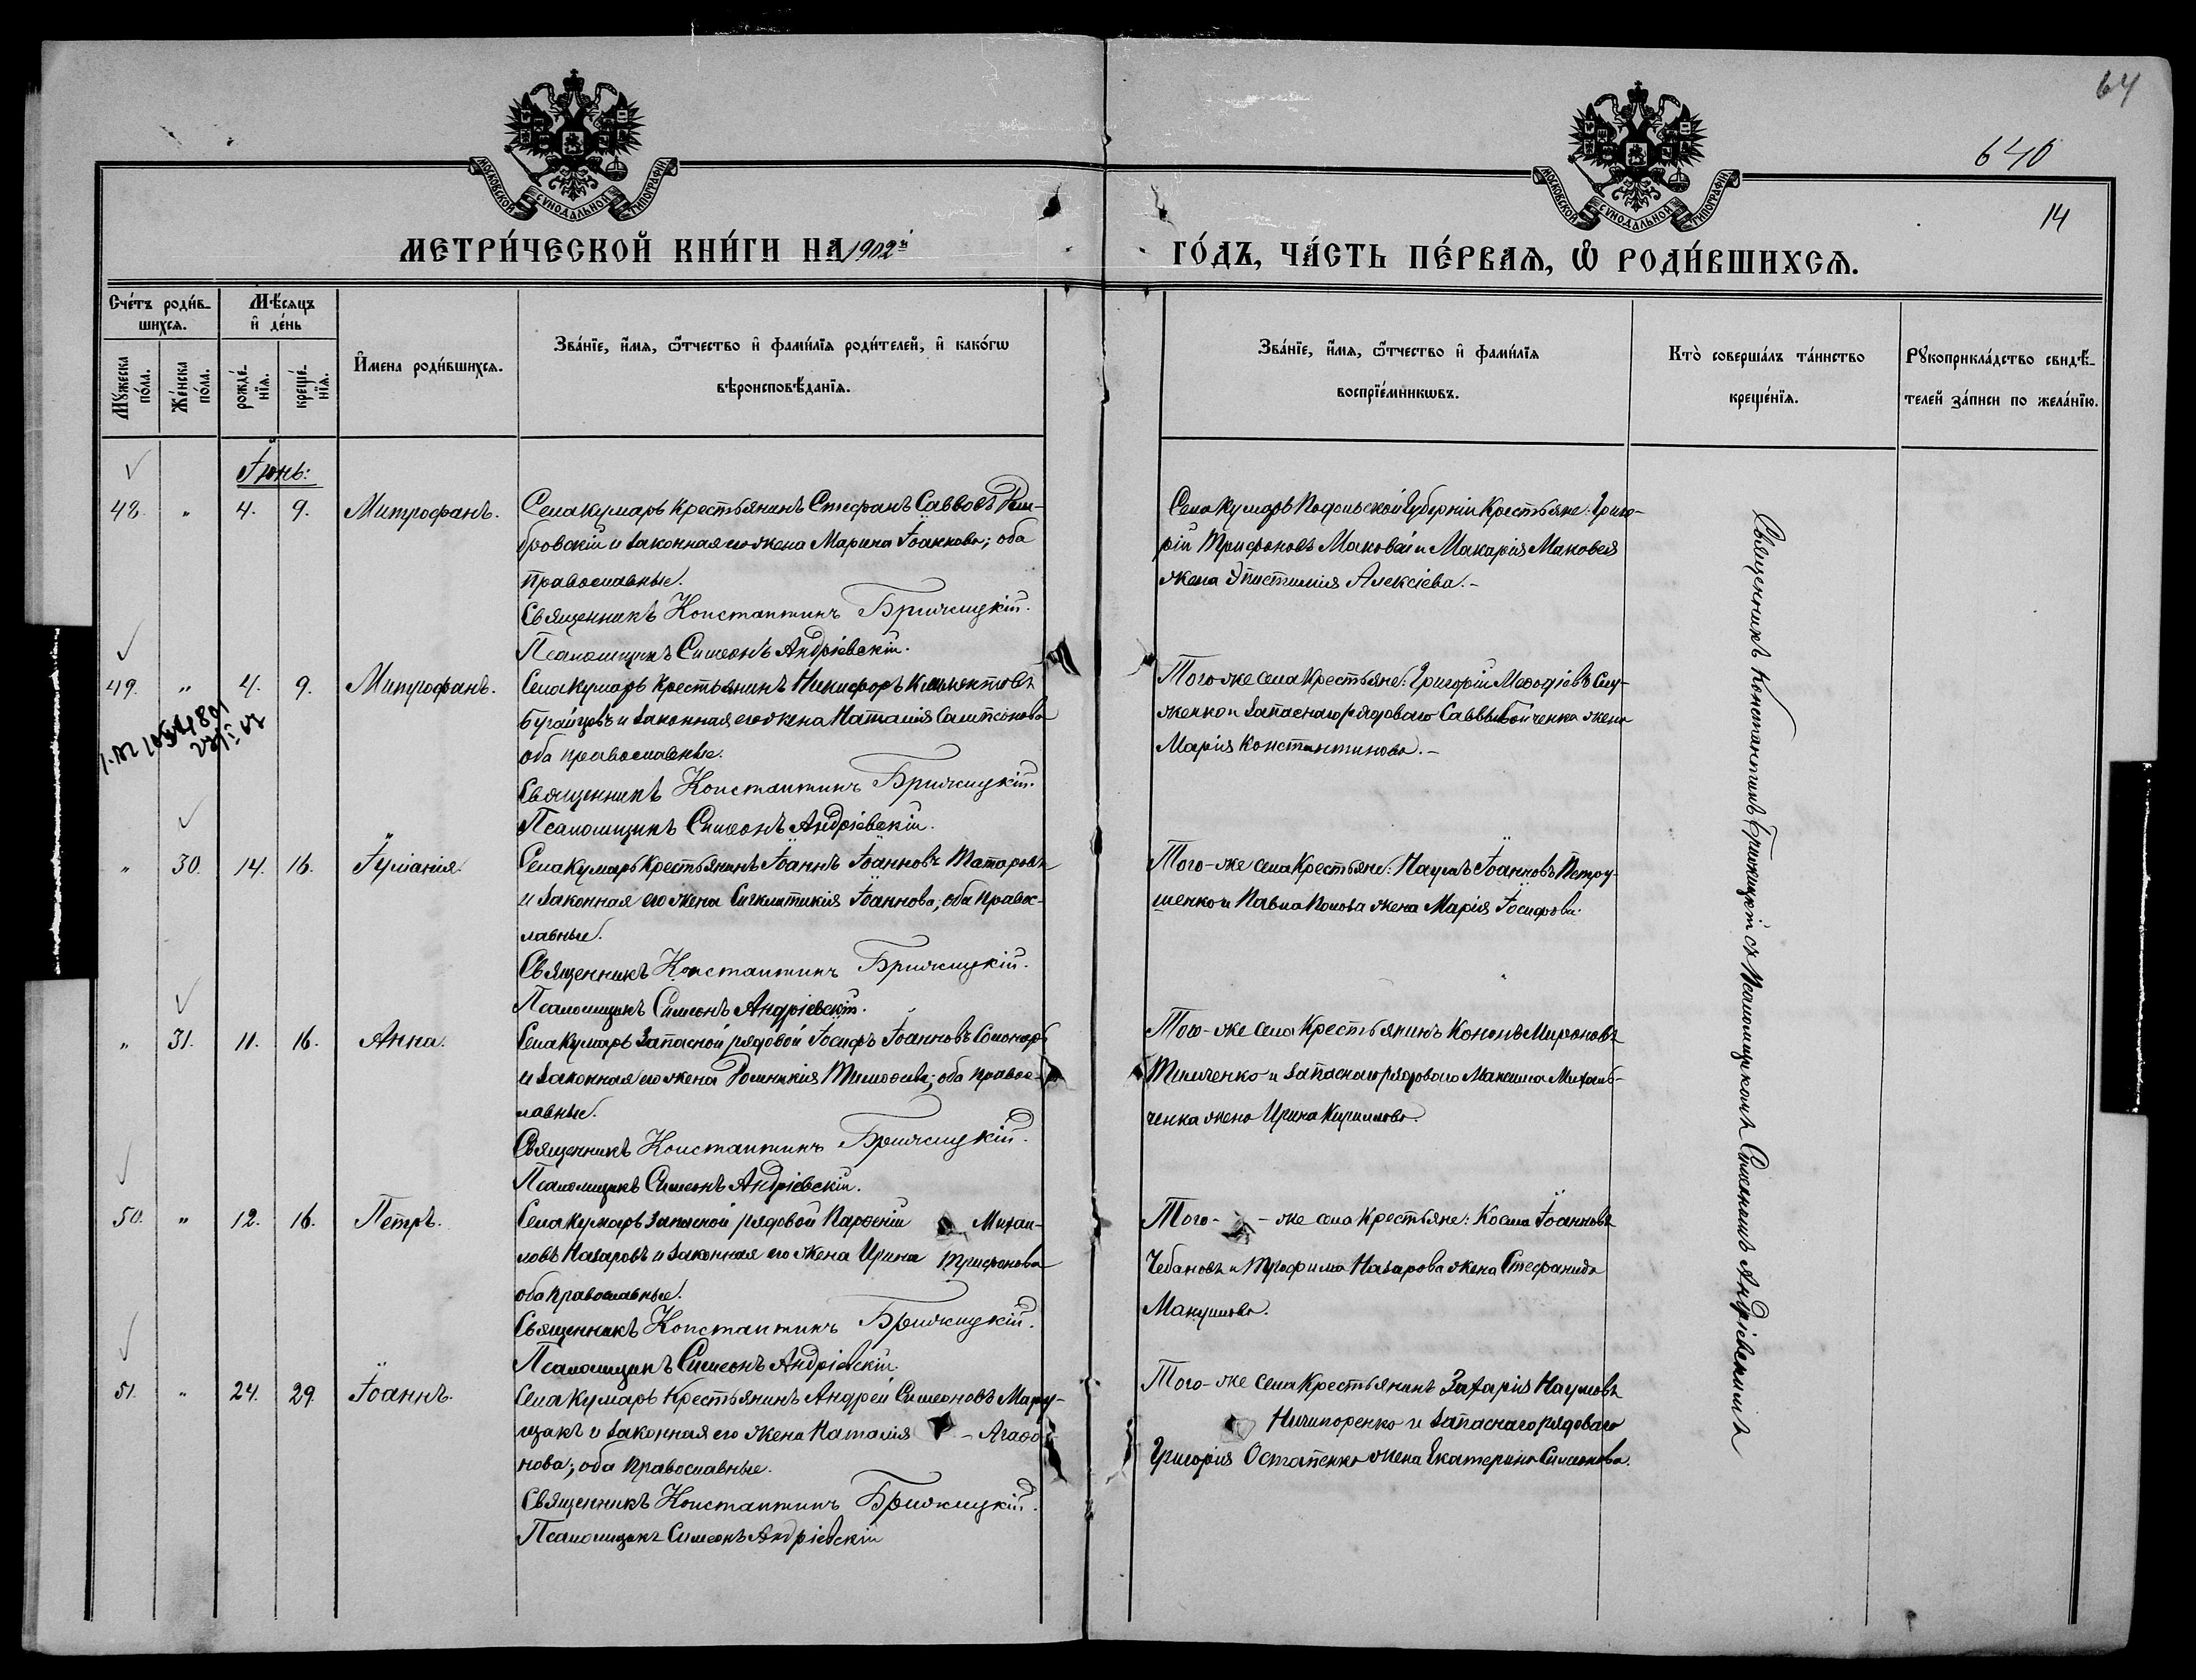 64
640
14
МОСКОВСКОЙ СУНОДАЛЬНОЙ ТИПОГРАФІИ
МОСКОВСКОЙ СУНОДАЛЬНОЙ ТИПОГРАФІИ
МЕТРИ́ЧЕСКОЙ КНИ́ГИ НА 1902й
ГО́ДЪ, ЧА́СТЬ ПЕ́РВАѦ, Ѡ РОДИ́ВШИХСѦ.
Сче́тъ роди́в-
шихсѧ.
Мѣ́сѧцъ
и де́нь
Мꙋ́жеска по́ла.
Же́нска по́ла.
рожде́-нїѧ.
креще́-нїѧ.
И҆мена роди́вшихсѧ.
Зва́нїе, и҆́мѧ, ѻ҆́тчество и҆ фами́лїѧ роди́телей, и҆ како́гѡ
вѣроисповѣ́данїѧ.
Зва́нїе, и҆́мѧ, ѻ҆́тчество и҆ фами́лїѧ
воспрїе́мникѡвъ.
Кто̀ соверша́лъ та́инство
креще́нїѧ.
Рꙋкоприкла́дство свидѣ́-
телей за́писи по жела́нїю.
Іюнь:
48. " 4. 9. Митрофанъ. Села Кумаръ Крестьянинъ Стефанъ Саввовъ
бровскій и законная его жена Марина Іоаннова; оба
православные.
Священникъ Константинъ Бржицкій.
Псаломщикъ Симеонъ Андріевскій.
Села Кумаръ Подольской Губерніи Крестьяне: Григо-
рій Трифоновъ Маковей и Макарія Маковея
жена Эпистимія Алексіева.-
49. " 4. 9. Митрофанъ. Села Кумаръ Крестьянинъ Никифоръ Климентовъ
Бугайцовъ и законная его жена Наталія Сампсонова
оба православные.
Священникъ Константинъ Бржицкій.
Псаломщикъ Симеонъ Андріевскій.
Того-же села Крестьяне: Григорій Меѳодіевъ Слу-
женко и запаснаго рядоваго Саввы Бойченка жена
Марія Константинова.-
" 30. 14. 16. Іуліанія. Села Кумаръ Крестьянинъ Іоаннъ Іоанновъ Татаровъ
и законная его жена Сигклитикія Іоаннова; оба правос-
лавные.
Священникъ Константинъ Бржицкій.
Псаломщикъ Симеонъ Андріевскій.
Того-же села Крестьяне: Наумъ Іоанновъ Петру-
шенко и Павла Попова жена Марія Іосифова.
" 31. 11. 16. Анна. Села Кумаръ Запасной рядовой Іосифъ Іоанновъ Соломаръ
и законная его жена Домникія Тимоѳеева; оба правос-
лавные.
Священникъ Константинъ Бржицкій.
Псаломщикъ Симеонъ Андріевскій.
Того-же села Крестьянинъ Кононъ Мироновъ
Тимченко и запаснаго рядоваго Максима Михаль-
ченка жена Ирина Кириллова.
50. " 12. 16. Петръ. Села Кумаръ запасной рядовой Парѳеній Михаи-
ловъ Назаровъ и законная его жена Ирина Трифонова
оба православные.
Священникъ Константинъ Бржицкій.
Псаломщикъ Симеонъ Андріевскій.
Того- -же села Крестьяне: Косма Іоанновъ
Чебановъ и Трофима Назарова жена Стефанида
51. " 24. 29. Іоаннъ. Села Кумаръ Крестьянинъ Андрей Симеоновъ Мару-
щакъ и законная его жена Наталія - Агаѳо-
нова; оба православные.
Священникъ Константинъ Бржицкій.
Псаломщикъ Симеонъ Андріевскій
Того-же села Крестьянинъ Захарія Наумовъ
Ничипоренко и запаснаго рядоваго
Григорія Остапенко жена Екатерина Симеонова.
Священникъ Константинъ Бржицкій съ Псаломщикомъ Симеономъ Андріевскимъ